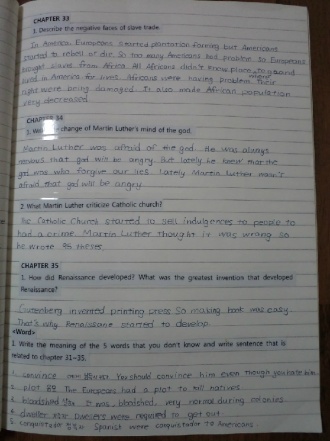 CHAPTER 33
1. Describe the negative faces of slave trade.
In America, Europeans started plantation farming but Americans
started to rebel or die. So too many Americans had problem. So Europeans
brought slaves from Africa. All Africans didn't know place to
lived in America for lives. Africans were having problem
right were being damaged. It also made African population
very decreased
CHAPTER 34
1. change of Martin Luther's mind of the god.
Martin Luther was afraid of the god. He was always
nervous that god will be angry But lately he knew that the
god was who forgive our lies. Lately Martin Luther wasn't
afraid that god will be angry.
2. What Martin Luther criticize Catholic church?
The Catholic Church started to sell indulgences to people to
had a crime. Martin Luther thought it was wrong so
he wrote 95 theses.
CHAPTER 35
1. How did Renaissance developed? What was the greatest invention that developed
Renaissance?
Gutenberg invented printing press So making book was easy.
That's why Renaissance started to develop.
<Word>
1. Write the meaning of the 5 words that you don't know and write sentence that is
related to chapter 31~35.
1. convince You should convince him even though you hate him.
2. plot The Europeans had a plot to kill natives
3. bloodshed bloodshed, very normal during colonies
4. dweller Dwellers were required to get out
5. conquistador Spanish were conquistador to Americans